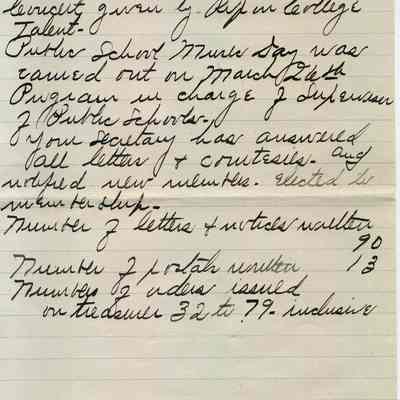 Concert given by Ripon College
Talent-
Public School Music Day was
carried out on March 26th
Program in charge of Supervisor
of Public Schools-
Your Secretary has answered
all letters & courtesies- and
notified new members. Elected to
membership-
Number of letters & notices written
90
Number of postals written 13
Numbers of orders issued
on treasurer 32 to 79- inclusive